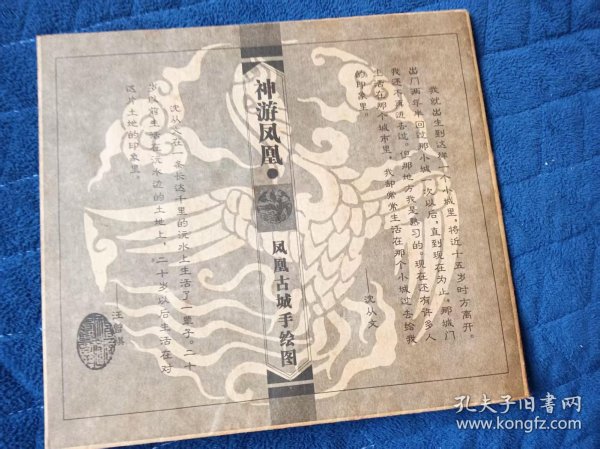 我就出生到这样一个小城里,将近十五岁时方离开。
出门两年半回过那小城一次以后,直到现在为止,那城门
我还不再进去过。但那地方我是熟习的。现在还有许多人
生活在那个城市里,我却常常生活在那个小城过去给我
的印象里。
——沈从文
神游凤凰·
凤凰古城手绘图
沈从文在一条长达千里的沅水上生活了一辈子。二十
岁以前生活在沅水边的土地上,二十岁以后生活在对
这片土地的印象里。
——汪曾祺
孔夫子旧书网
www.kongfz.com